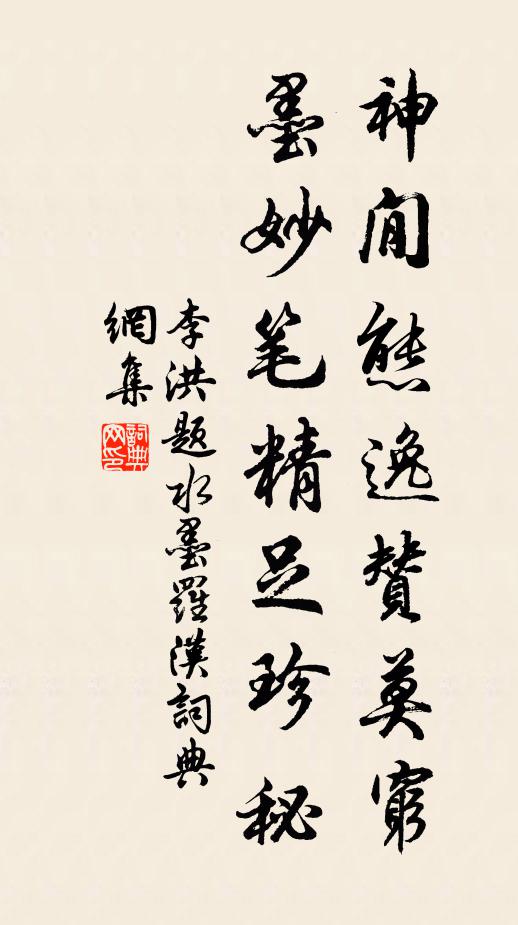 神閒態逸贊莫窮
墨妙笔精足珍秘
李洪题水墨羅漢詞典
網集
詞典
网印